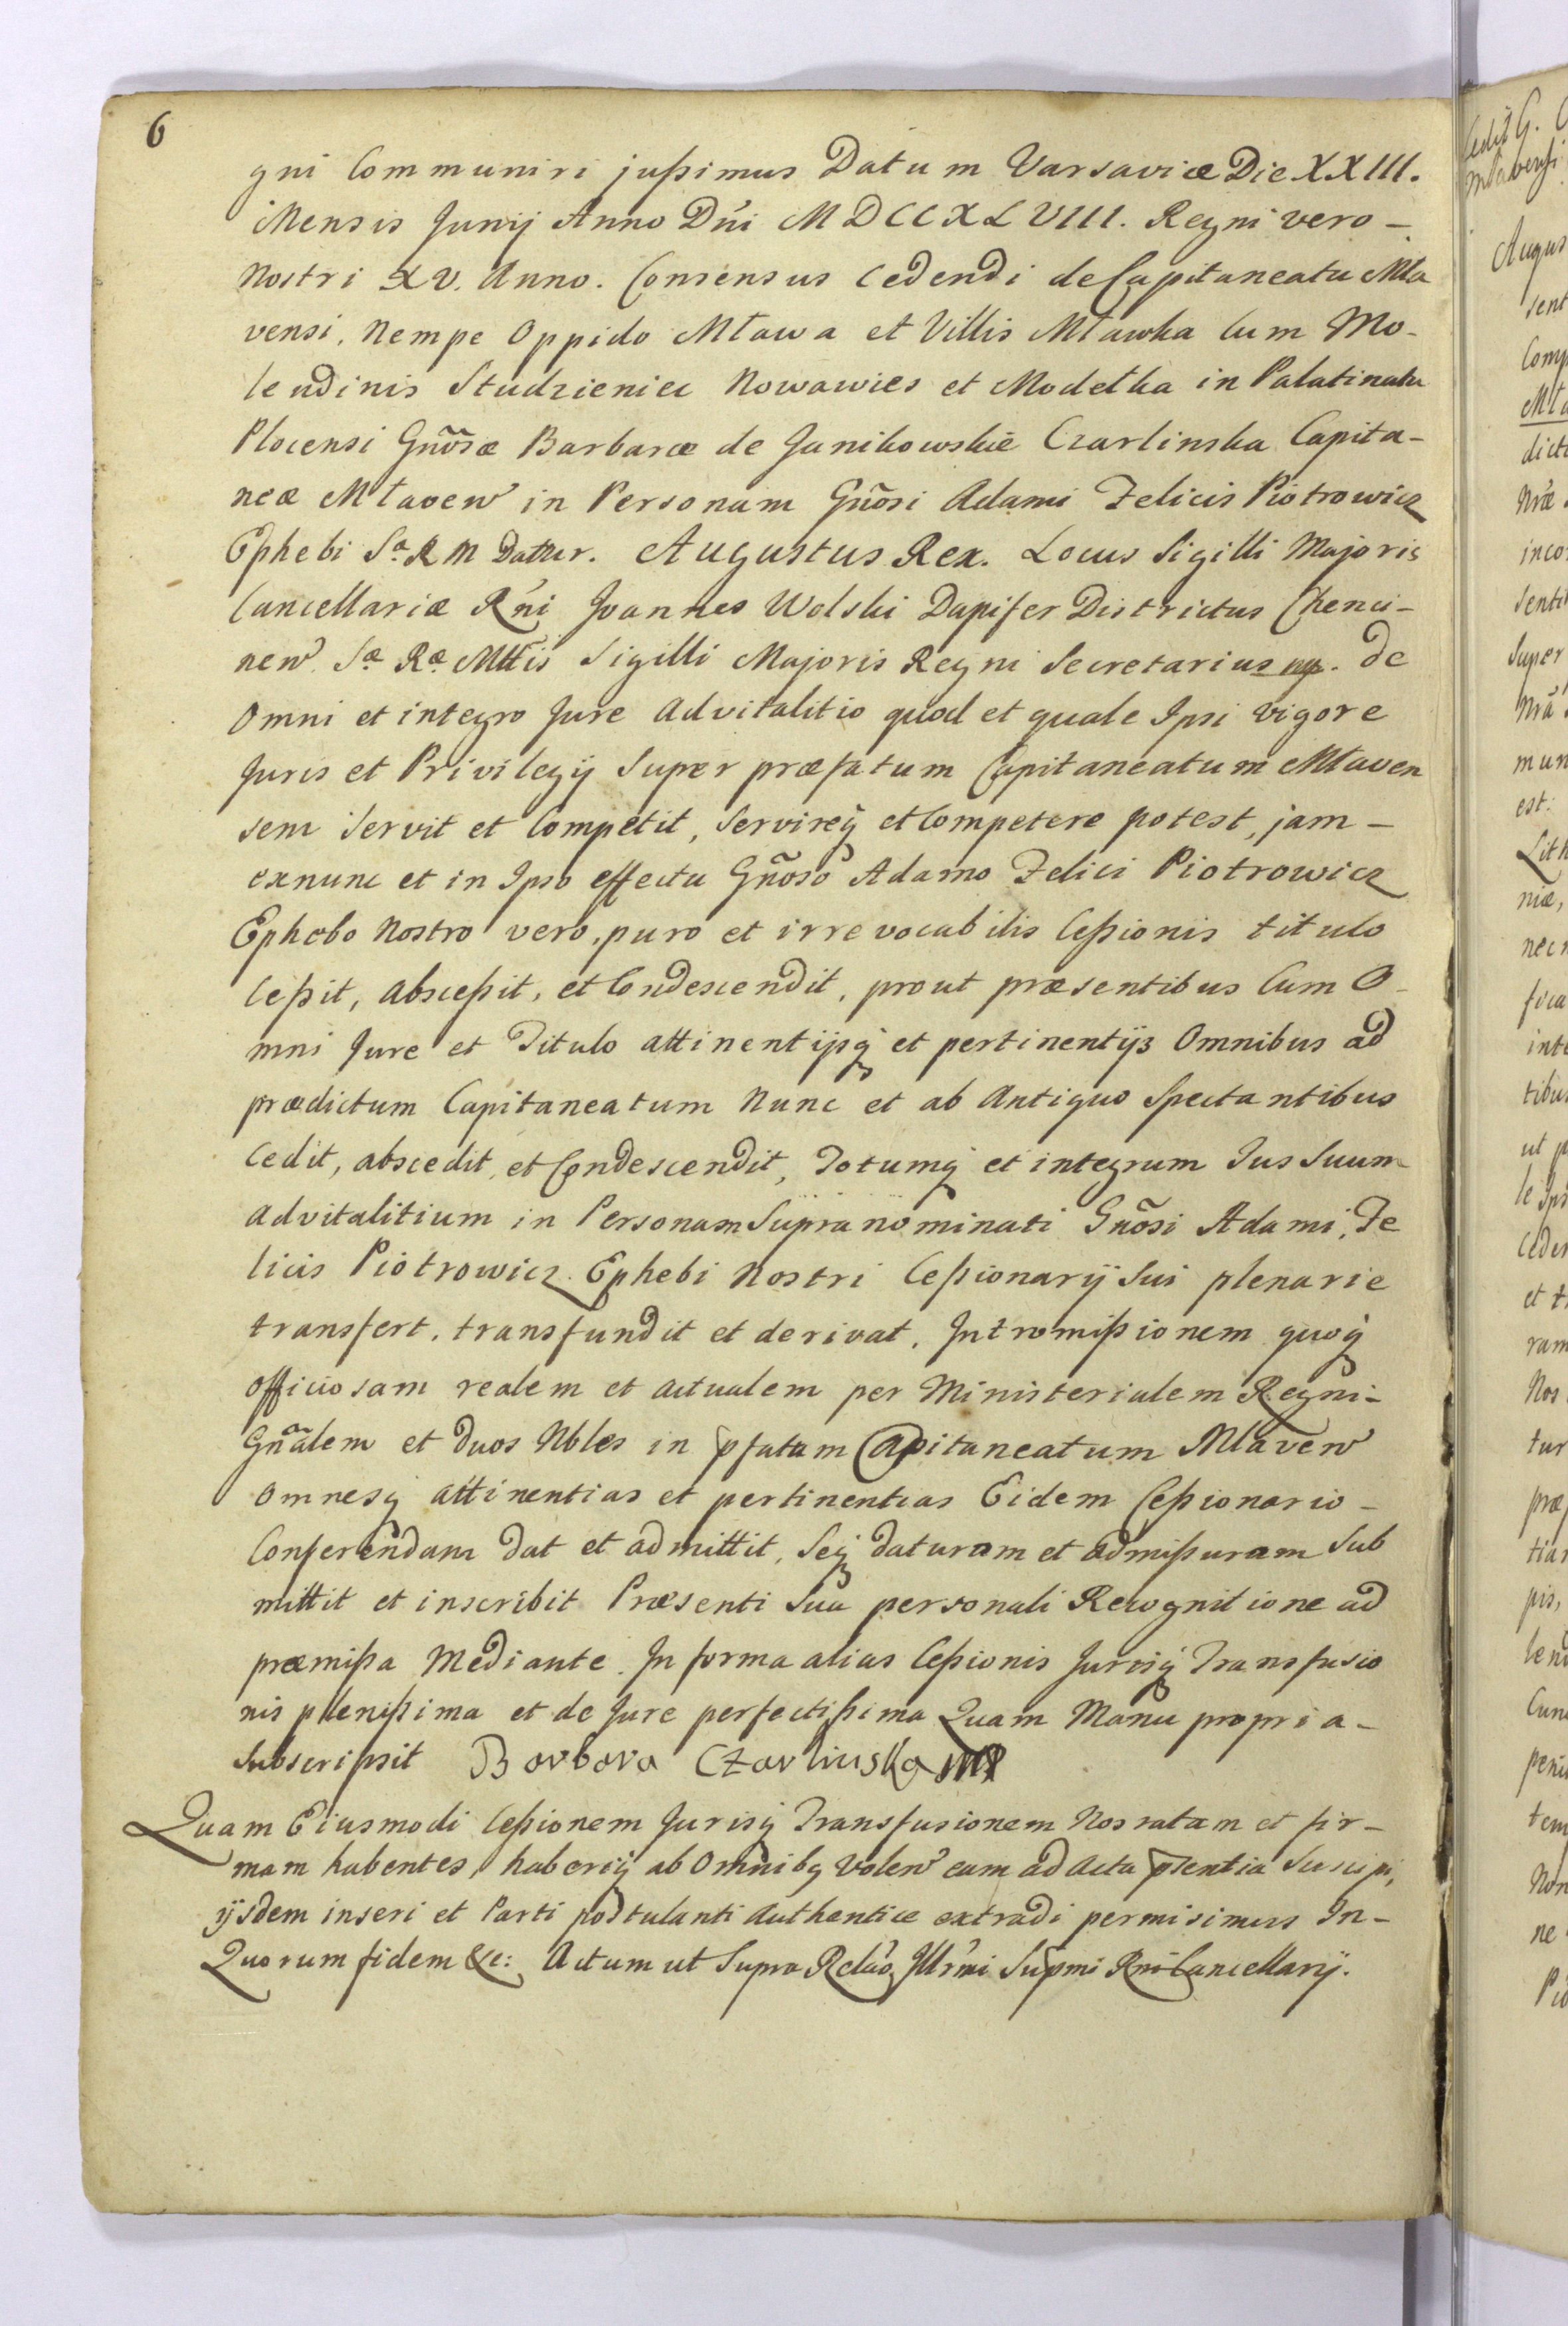 6
gni Communiri jussimus Datum Varsaviæ Die XXIII.
Mensis Junij Anno Dni MDCCXLVIII. Regni vero -
Nostri XV. Anno. Consensus Cedendi de Capitaneatu Mla
vensi, Nempe Oppido Mława et Villis Mławka Cum Mo-
lendinis Studzieniec Nowawies et Modełka in Palatinatu
Plocensi Gnosæ Barbaræ de Janikowskie Czarlinska Capita-
neæ Młaven in Personam Gnosi Adami Felicis Piotrowicz
Ephebi Sæ R M Datur. Augustus Rex. Locus Sigilli Majoris
Cancellariæ Rni Joannes Wolski Dapifer Districtus Chenci-
nen Sæ Ræ Mttis Sigilli Majoris Regni Secretarius mp. de
Omni et integro Jure Advitalitio quod et quale Ipsi vigore
Juris et Privilegij Super præfatum Capitaneatum Mlaven
sem Servit et Competit, Servireq et Competere potest, jam -
exnunc et in Ipso effectu Gnoso Adamo Felici Piotrowicz
Ephebo Nostro vero, puro et irrevocabilis Cessionis titulo
Cessit, abscessit, et Condescendit, prout præsentibus Cum O-
mni Jure et Titulo attinentijsq et pertinentijs Omnibus ad
prædictum Capitaneatum Nunc et ab Antiquo Spectantibus
Cedit, abscedit, et Condescendit, Totumq et integrum Jus Suum
Advitalitium in Personam Supranominati Gnosi Adami, Fe
licis Piotrowicz Ephebi Nostri Cessionarij Sui plenarie
transfert, transfundit et derivat, Intromissionem quoq
officiosam realem et actualem per Ministerialem Regni-
Gnalem et duos Nbles in pfatum Capitaneatum Mlaven
omnesq attinentias et pertinentias Eidem Cessionario -
Conferendam dat et admittit, Seq daturam et admissuram Sub
mittit et inscribit Præsenti Sua personali Recognitione ad
præmissa Mediante. In forma alias Cessionis Jurisq Transfusio
nis plenissima et de Jure perfectissima Quam Manu propria -
Subscripsit Barbara Czarlinska mp
Quam Eiusmodi Cessionem Jurisq Transfusionem Nos ratam et fir-
mam habentes, haberiq ab Omnibq Volen eam ad Acta psentia Suscipi,
ijsdem inseri et Parti postulanti Authentice extradi permisimus In-
Quorum fidem &c: Actum ut Supra Relao Illrmi Supmi Rni Cancellarij.